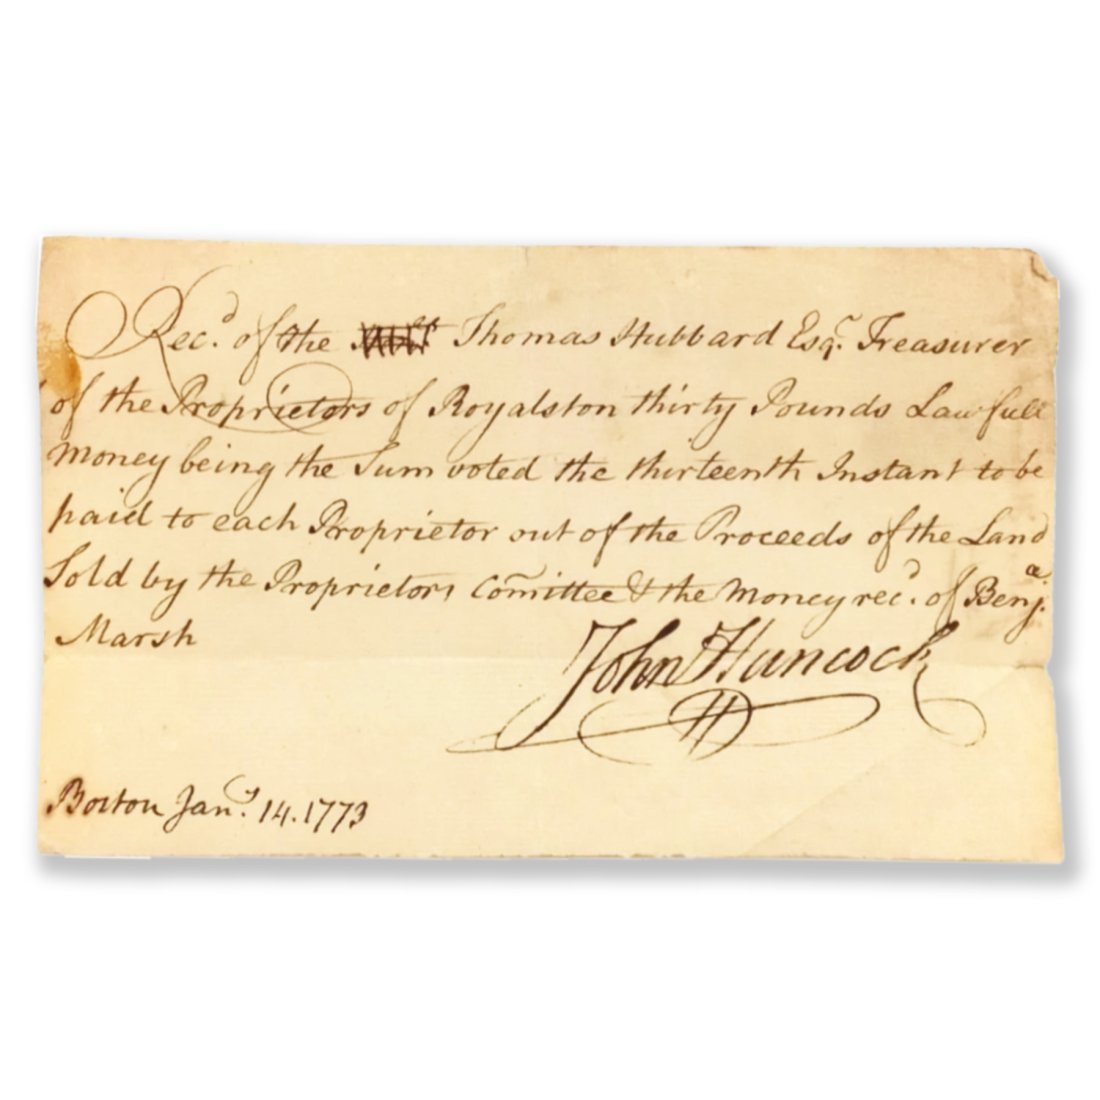 Rec.d of the Thomas Hubbard Esq.r Treasurer
of the Proprietors of Royalston thirty Pounds Lawfull
money being the Sum voted the thirteenth Instant to be
paid to each Proprietor out of the Proceeds of the Land
Sold by the Proprietors Com̄ittee & the Money rec.d of Benj.a
Marsh
John Hancock
Boston Jan.y 14. 1773